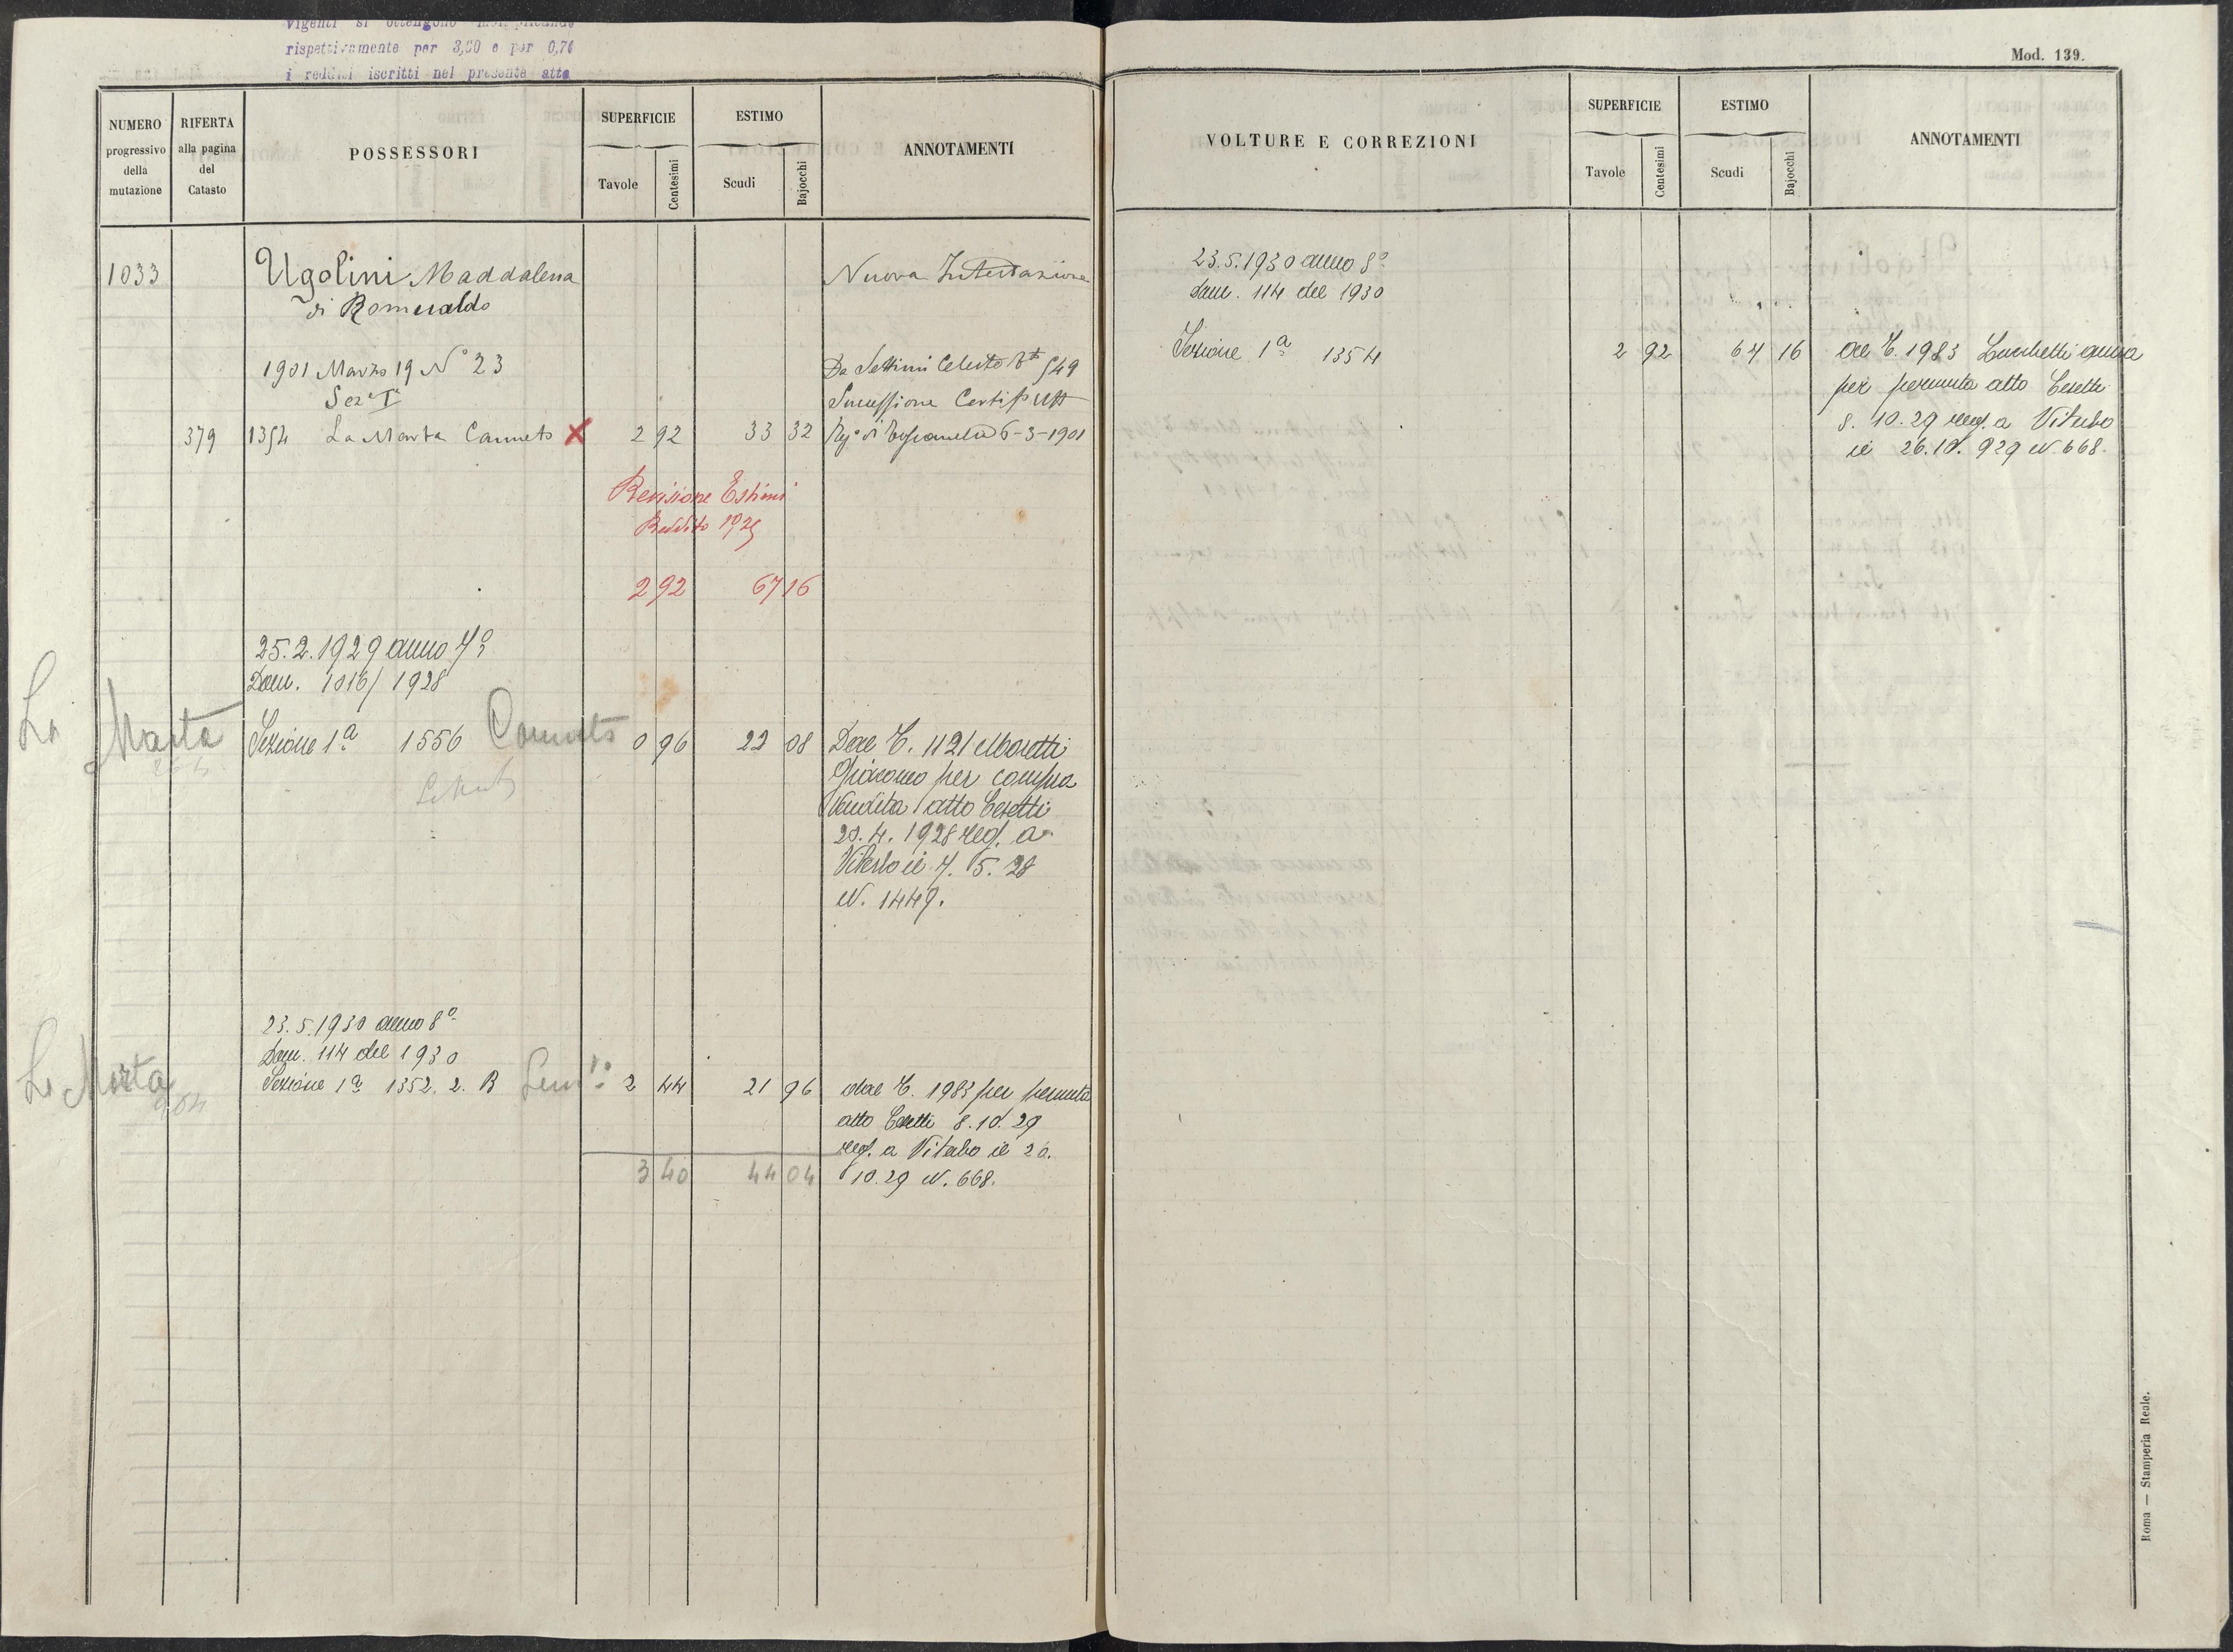 rispettivamente per 3,00 e por 0,76
i redditi iscritti nel presente atto
Mod. 139.
NUMERO progressivo della mutazione
RIFERTA alla pagina del Catasto
POSSESSORI
SUPERFICIE
Tavole Centesimi
ESTIMO
Scudi Bajocchi
ANNOTAMENTI
1033 Ugolini Maddalena Nuova Intestazione
di Romualdo
1901 Marzo 19 N° 23 Da Settimi Celeste
Sez.e I.a Successione
379 1354 La Marta Canneto X 2 92 33 32 6-3-1901
Revisione Estimi
Reddito
2 92 67 16
25.2.1929 anno 7°
Dom. 1016/1928
La Marta Sezione 1a 1556 Canneto 0 96 22 08 Dal C. 1121 Moretti
Giacomo per compra
Vendita atto Cesetti
20.4.1928 reg. a
Viterbo il 7.5.28
N. 1449.
23.5.1930 anno 8°
Dom. 114 del 1930
La Marta Sezione 1a 1352.2.B Sem.vo 2 44 21 96 dal C. 1983 per permuta
atto Cesetti 8.10.29
reg. a Viterbo il 26.
3 40 44 04 10.29 N. 668.
VOLTURE E CORREZIONI
SUPERFICIE
Tavole Centesimi
ESTIMO
Scudi Bajocchi
ANNOTAMENTI
23.5.1930 anno 8°
Dom. 114 del 1930
Sezione 1a 1354 2 92 67 16 al C. 1983 Lucchetti
per permuta atto Cesetti
8.10.29 reg. a Viterbo
il 26.10.929 N. 668.
Roma — Stamperia Reale.